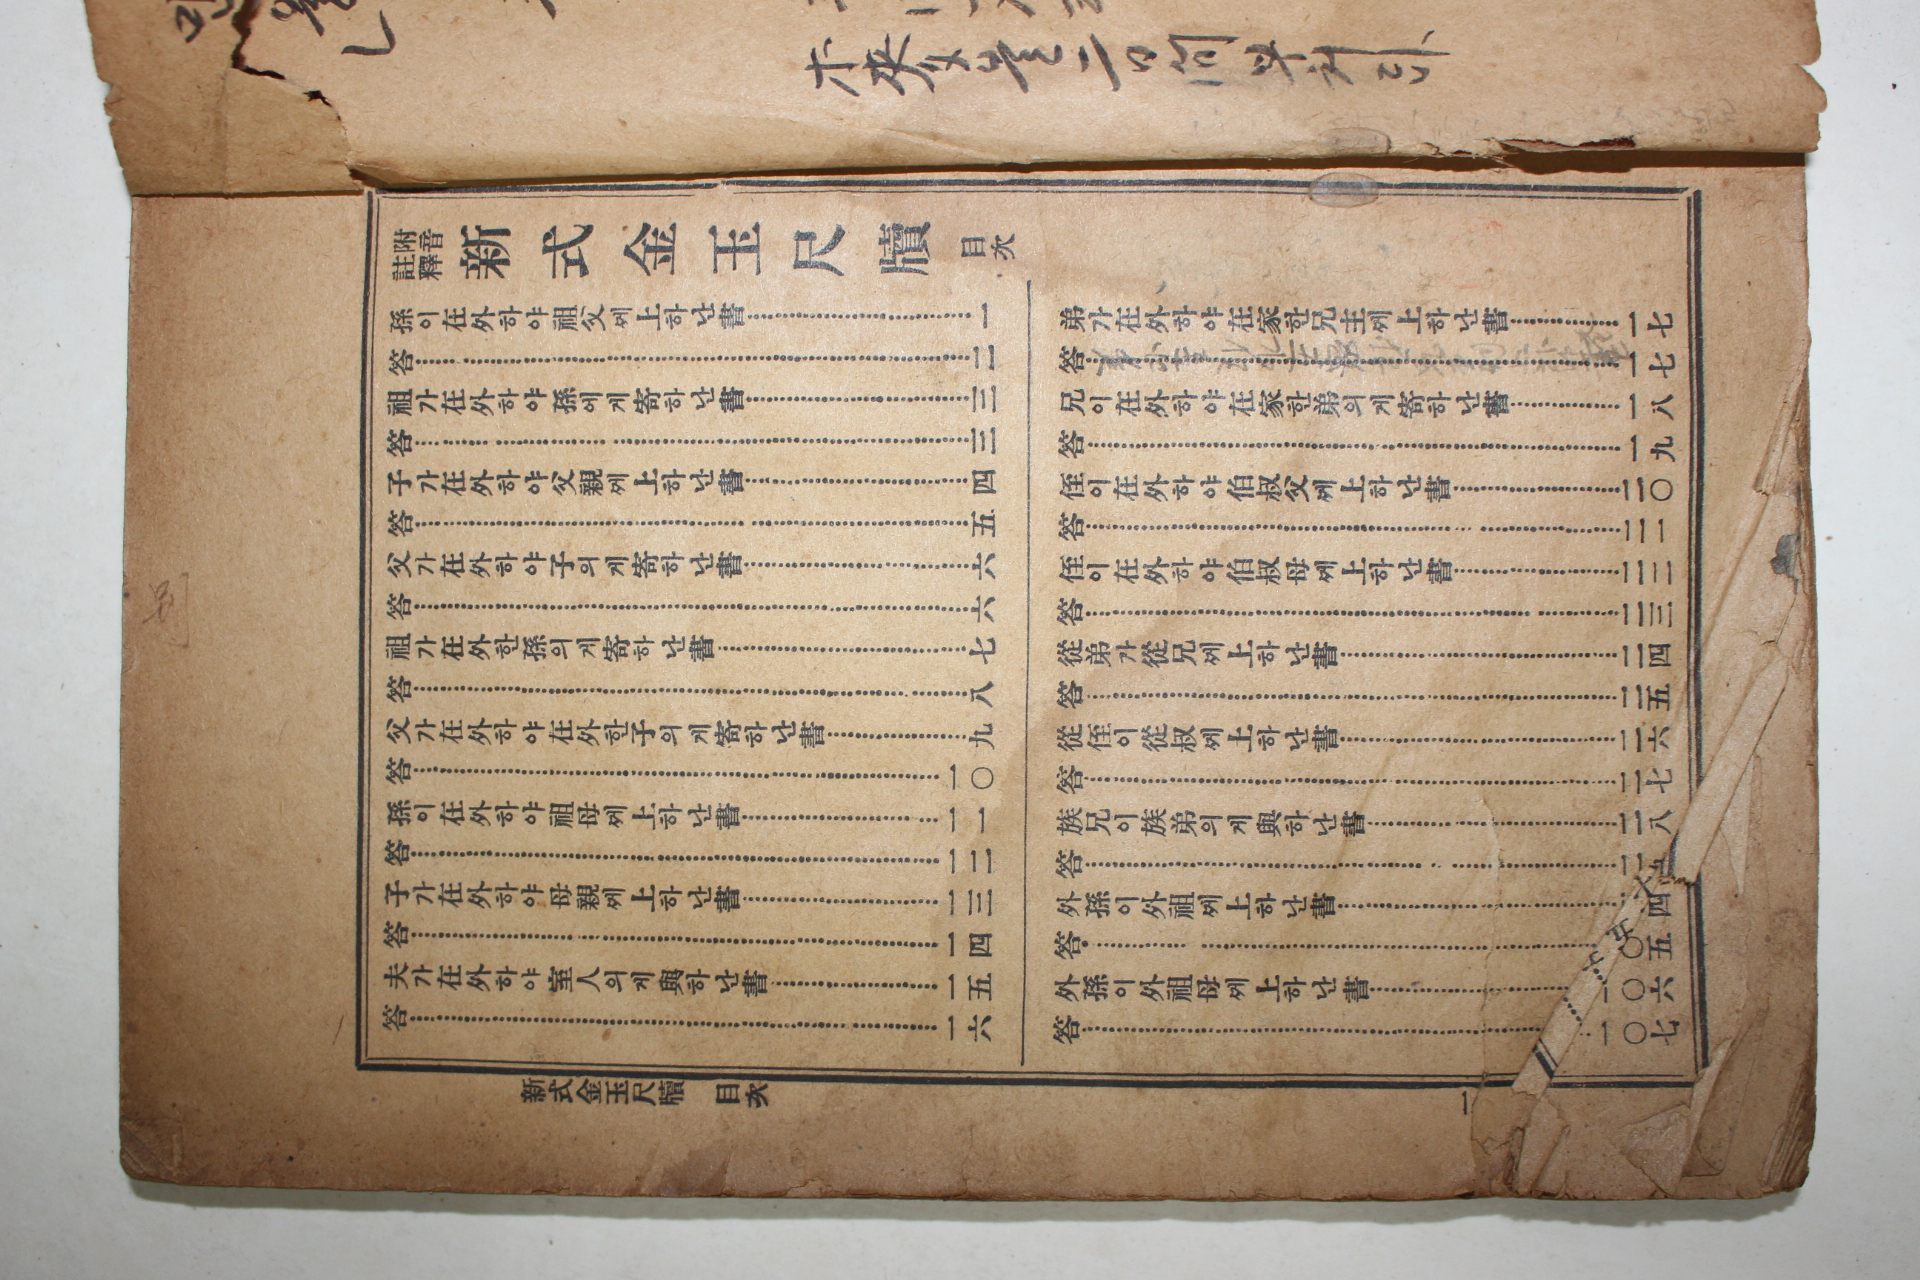 未來
附音註釋 新式金玉尺牘 目次
孫이在外하야祖父께上하난書 一
答 二
祖가在外하야孫에게寄하난書 三
答 三
子가在外하야父親께上하난書 四
答 五
父가在外하야子의게寄하난書 六
答 六
祖가在外한孫의게寄하난書 七
答 八
父가在外하야在外한子의게寄하난書 九
答 一〇
孫이在外하야祖母께上하난書 一一
答 一二
子가在外하야母親께上하난書 一三
答 一四
夫가在外하야室人의게與하난書 一五
答 一六
弟가在外하야在家한兄主께上하난書 一七
答 一七
兄이在外하야在家한弟의게寄하난書 一八
答 一九
侄이在外하야伯叔父께上하난書 二〇
答 二一
侄이在外하야伯叔母께上하난書 二二
答 二三
從弟가從兄께上하난書 二四
答 二五
從侄이從叔께上하난書 二六
答 二七
族兄이族弟의게與하난書 二八
答
外孫이外祖께上하난書 四
答 〇五
外孫이外祖母께上하난書 一〇六
答 一〇七
新式金玉尺牘 目次
一